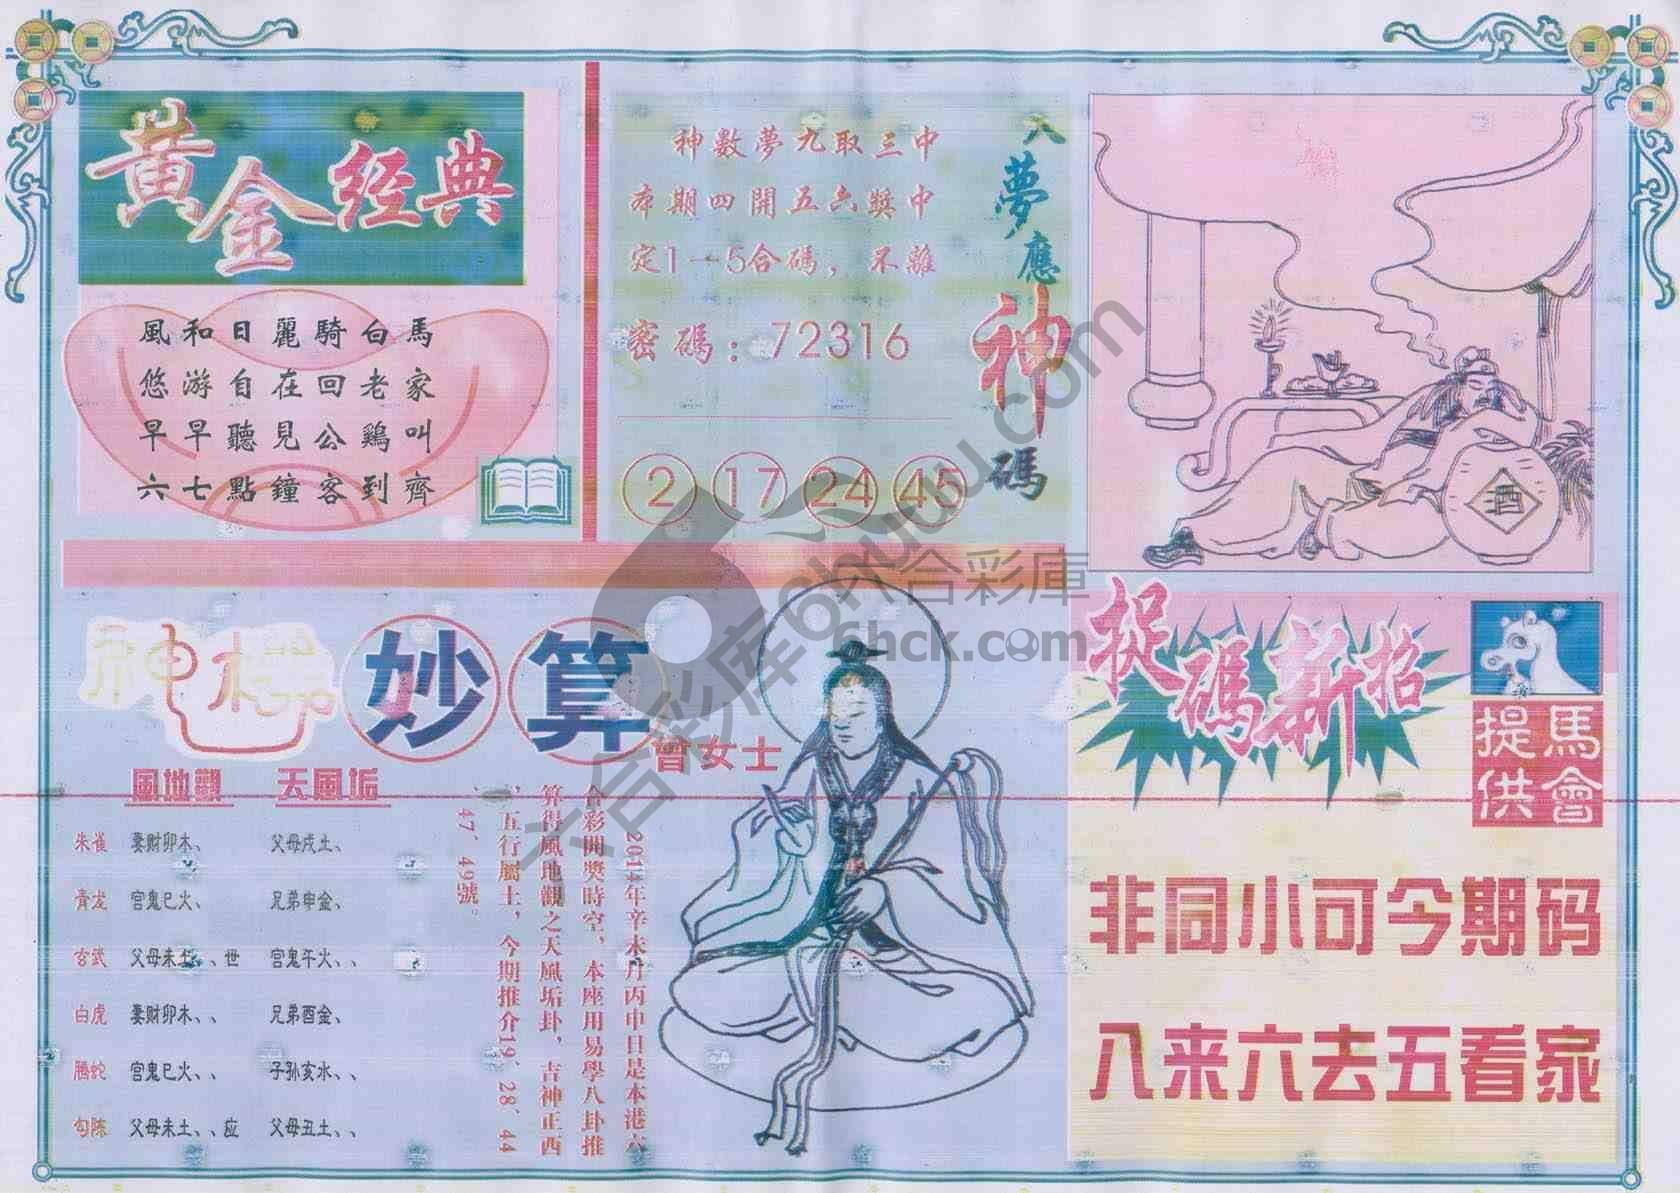 黄金经典
風和日麗騎白馬
悠游自在回老家
早早聽見公鷄叫
六七點鐘客到齊
神數夢九取三中
本期四開五六獎中
定1—5合碼，不離
密碼：72316
2 17 24 45
入夢應神碼
酒
六合彩庫
6hck.com
六合彩库6huw.com
神機妙算
曾女士
風地觀 天風垢
朱雀 妻财卯木、 父母戌土、
青龙 官鬼巳火、 兄弟申金、
玄武 父母未土、、世 官鬼午火、、
白虎 妻财卯木、、 兄弟酉金、
腾蛇 官鬼巳火、、 子孙亥水、、
勾陈 父母未土、、应 父母丑土、、
2014年辛未月丙申日是本港六
合彩開獎時空、本座用易學八卦推
算得風地觀之天風垢卦，吉神正西
，五行屬土，今期推介19、28、44
、47、49號。
捉碼新招
馬會
提供
非同小可今期码
八来六去五看家